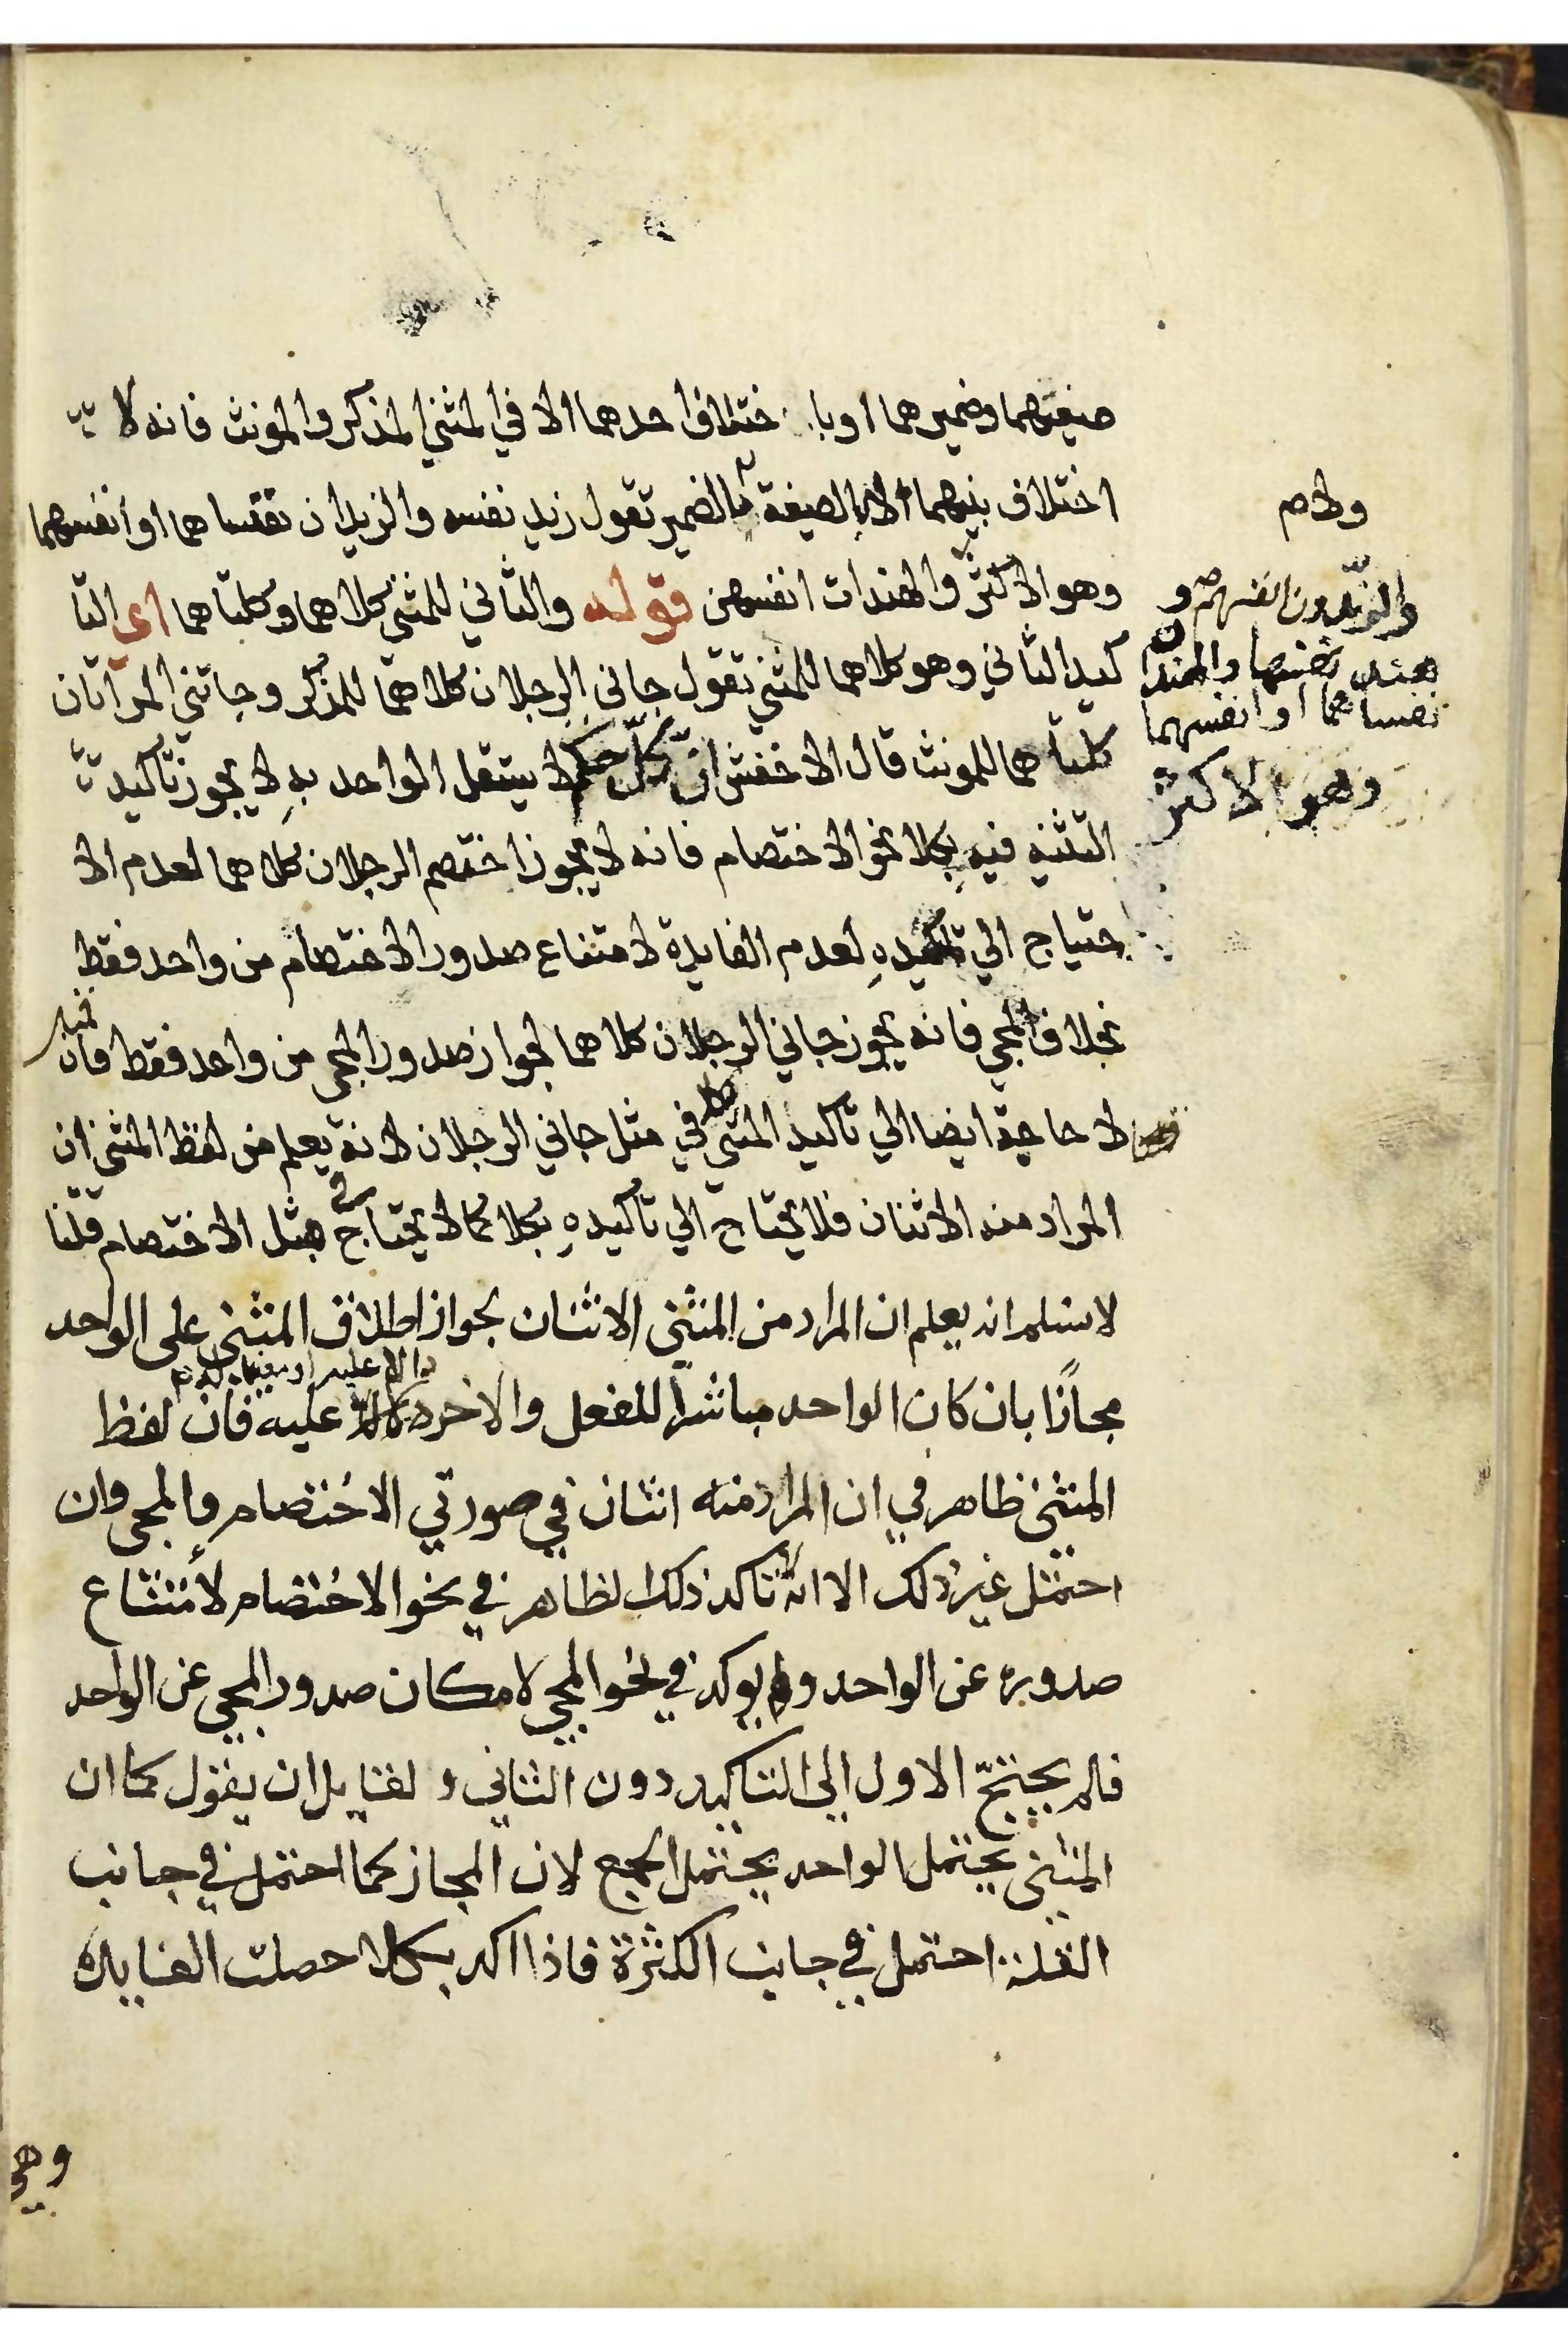 صيغتهما وضميرهما او با ختلاف احدهما الا في المثني المذكر والمونث فانه لا
اختلاف بينهما لا بالصيغة ولا بالضمير تقول زيد نفسه والزيدان نفساهما او انفسهما
وهو الاكثر والهندات انفسهن قوله والثاني للمثني كلاهما وكلتاهما اى التا
كيد الثاني وهو كلاهما للمثني تقول جاني الرجلان كلاهما للمذكر وجاتني المرآتان
كلتاهما للمونث قال الاخفش ان كل حكم لا يستقل الواحد به لا يجوز تاكيد
التثنيه فيه بكلا نحو الاختصام فانه لا يجوز اختصم الرجلان كلاهما لعدم الا
حتياج الي تاكيده لعدم الفايدة لامتناع صدور الاختصام من واحد فقط
بخلاف المجي فانه يجوز جاني الرجلان كلاهما لجواز صدور المجي من واحد فقط فان قيل
لا حاجة ايضا الي تاكيد المثني بكلا في مثل جاني الرجلان لانه يعلم من لفظ المثني ان
المراد منه الاثنان فلا يحتاج الي تاكيده بكلا كما لا يحتاج في مثل الاختصام قلنا
لا نسلم انه يعلم ان المراد من المثنى الاثنان بجواز اطلاق المثنى على الواحد
مجازًا بان كان الواحد مباشرا للفعل والاخر دالا عليه فان لفظ
المثنى ظاهر في ان المراد منه اثنان في صورتي الاختصام والمجى وان
احتمل غير ذلك الا انه تاكد ذلك الظاهر في نحو الاختصام لامتناع
صدوره عن الواحد ولم يوكد في نحو المجي لامكان صدور المجي عن الواحد
فلم يحتج الاول الى التاكيد دون الثاني و لقايل ان يقول كما ان
المثنى يحتمل الواحد يحتمل الجمع لان المجاز كما احتمل في جانب
القلة احتمل في جانب الكثرة فاذا اكد بكلا حصلت الفايدة
وهي
والزيدون انفسهم و
هند نفسها والهندان
نفساهما او انفسهما
وهو الاكثر